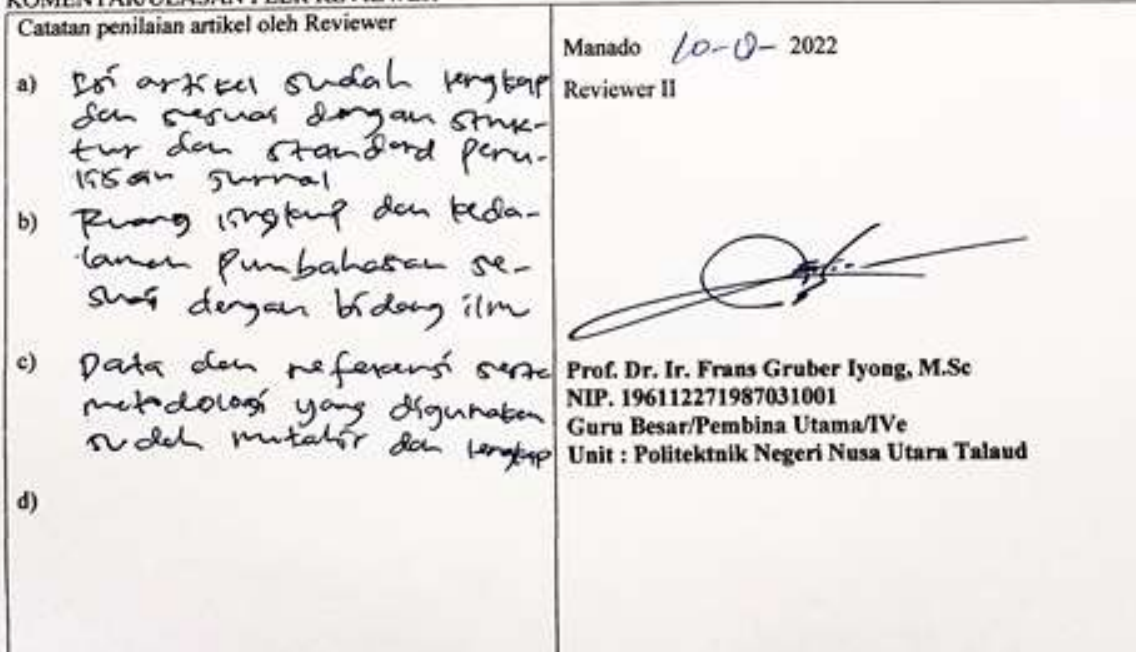 KOMENTAR/ULASAN PEER REVIEWER
Catatan penilaian artikel oleh Reviewer
a) Isi artikel sudah lengkap
dan sesuai dengan struk-
tur dan standard penu-
lisan jurnal
b) Ruang lingkup dan keda-
laman pembahasan se-
suai dengan bidang ilmu
c) Data dan referensi serta
metodologi yang digunakan
sudah mutahir dan lengkap
d)
Manado 2022
Reviewer II
Prof. Dr. Ir. Frans Gruber Iyong, M.Sc
NIP. 196112271987031001
Guru Besar/Pembina Utama/IVe
Unit : Politektnik Negeri Nusa Utara Talaud